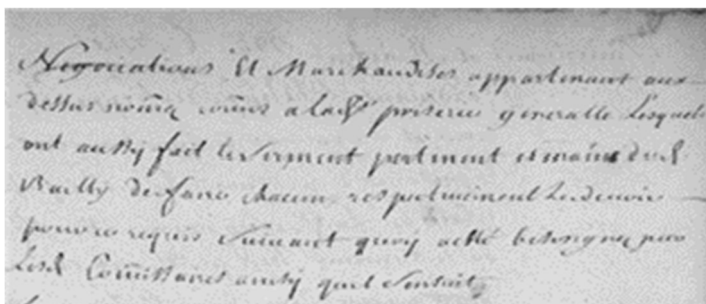 Negociations Et Marchandises appartenant aux
dessus nom̃ez com̃is a lad. priserie generalle Lesquels
ont aussy fait le serment pertinent es mains dud.
Bailly de faire chacun respectivement Le devoir
pour ce requis Suivant quoy a esté besongné par
Lesd. Com̃issaires ainsy quil s'ensuit